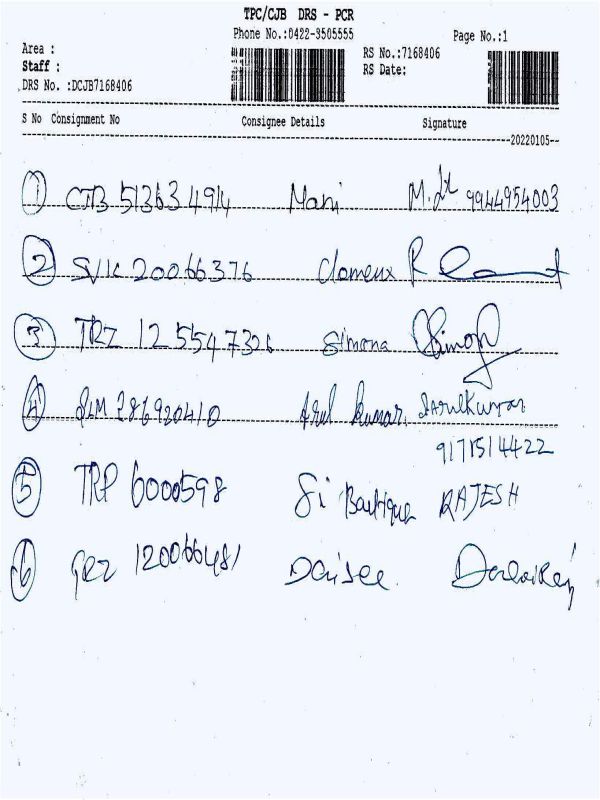 TPC/CJB DRS - PCR
Phone No.:0422-3505555 Page No.:1
Area : RS No.:7168406
Staff : RS Date:
DRS No. :DCJB7168406
S No Consignment No Consignee Details Signature
20220105
1 CJB 513634914 Mani 9944954003
2 SVK 20066376
3 TRZ 125547326 Simona Simon
4 SLM 286920410 Arul kumar. S Arulkumar
9171514422
5 TRP 6000598 Sri Boutique RAJESH
6 120066481